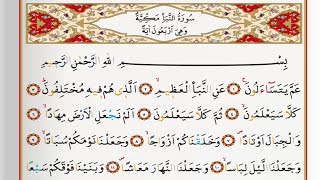 سُورَةُ النَّبَأِ مَكِّيَّةٌ
وَهِيَ أَرْبَعُونَ آيَةً
بِسْمِ اللهِ الرَّحْمٰنِ الرَّحِيمِ
عَمَّ يَتَسَآءَلُونَ ۝١ عَنِ النَّبَأِ الْعَظِيمِ ۝٢ الَّذِى هُمْ فِيهِ مُخْتَلِفُونَ ۝٣
كَلَّا سَيَعْلَمُونَ ۝٤ ثُمَّ كَلَّا سَيَعْلَمُونَ ۝٥ أَلَمْ نَجْعَلِ الْأَرْضَ مِهَادًا ۝٦
وَالْجِبَالَ أَوْتَادًا ۝٧ وَخَلَقْنَاكُمْ أَزْوَاجًا ۝٨ وَجَعَلْنَا نَوْمَكُمْ سُبَاتًا ۝٩
وَجَعَلْنَا الَّيْلَ لِبَاسًا ۝١٠ وَجَعَلْنَا النَّهَارَ مَعَاشًا ۝١١ وَبَنَيْنَا فَوْقَكُمْ سَبْعًا